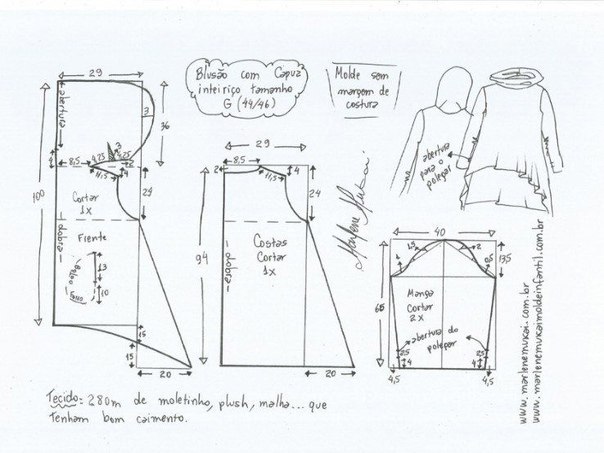 Blusão com Capuz
inteiriço tamanho
G (44/46)
Molde sem
margem de
costura
29
abertura
3
36
3
8,5
4,25
4,25
2
4
11,5
4
100
Cortar
1x
24
Frente
dobra
Bolso
Fundo
13
10
15
15
20
29
8,5
2
11,5
4
24
94
Costas
Cortar
1x
dobra
20
Marlene Mukai
abertura
para o
polegar
40
1,5
2
0,5
13,5
65
Manga
Cortar
2x
abertura do
polegar
2,5
4
2,5
4
4,5
4,5
www.marlenemukai.com.br
www.marlenemukaimoldeinfantil.com.br
Tecido: 280m de moletinho, plush, malha... que
Tenham bom caimento.